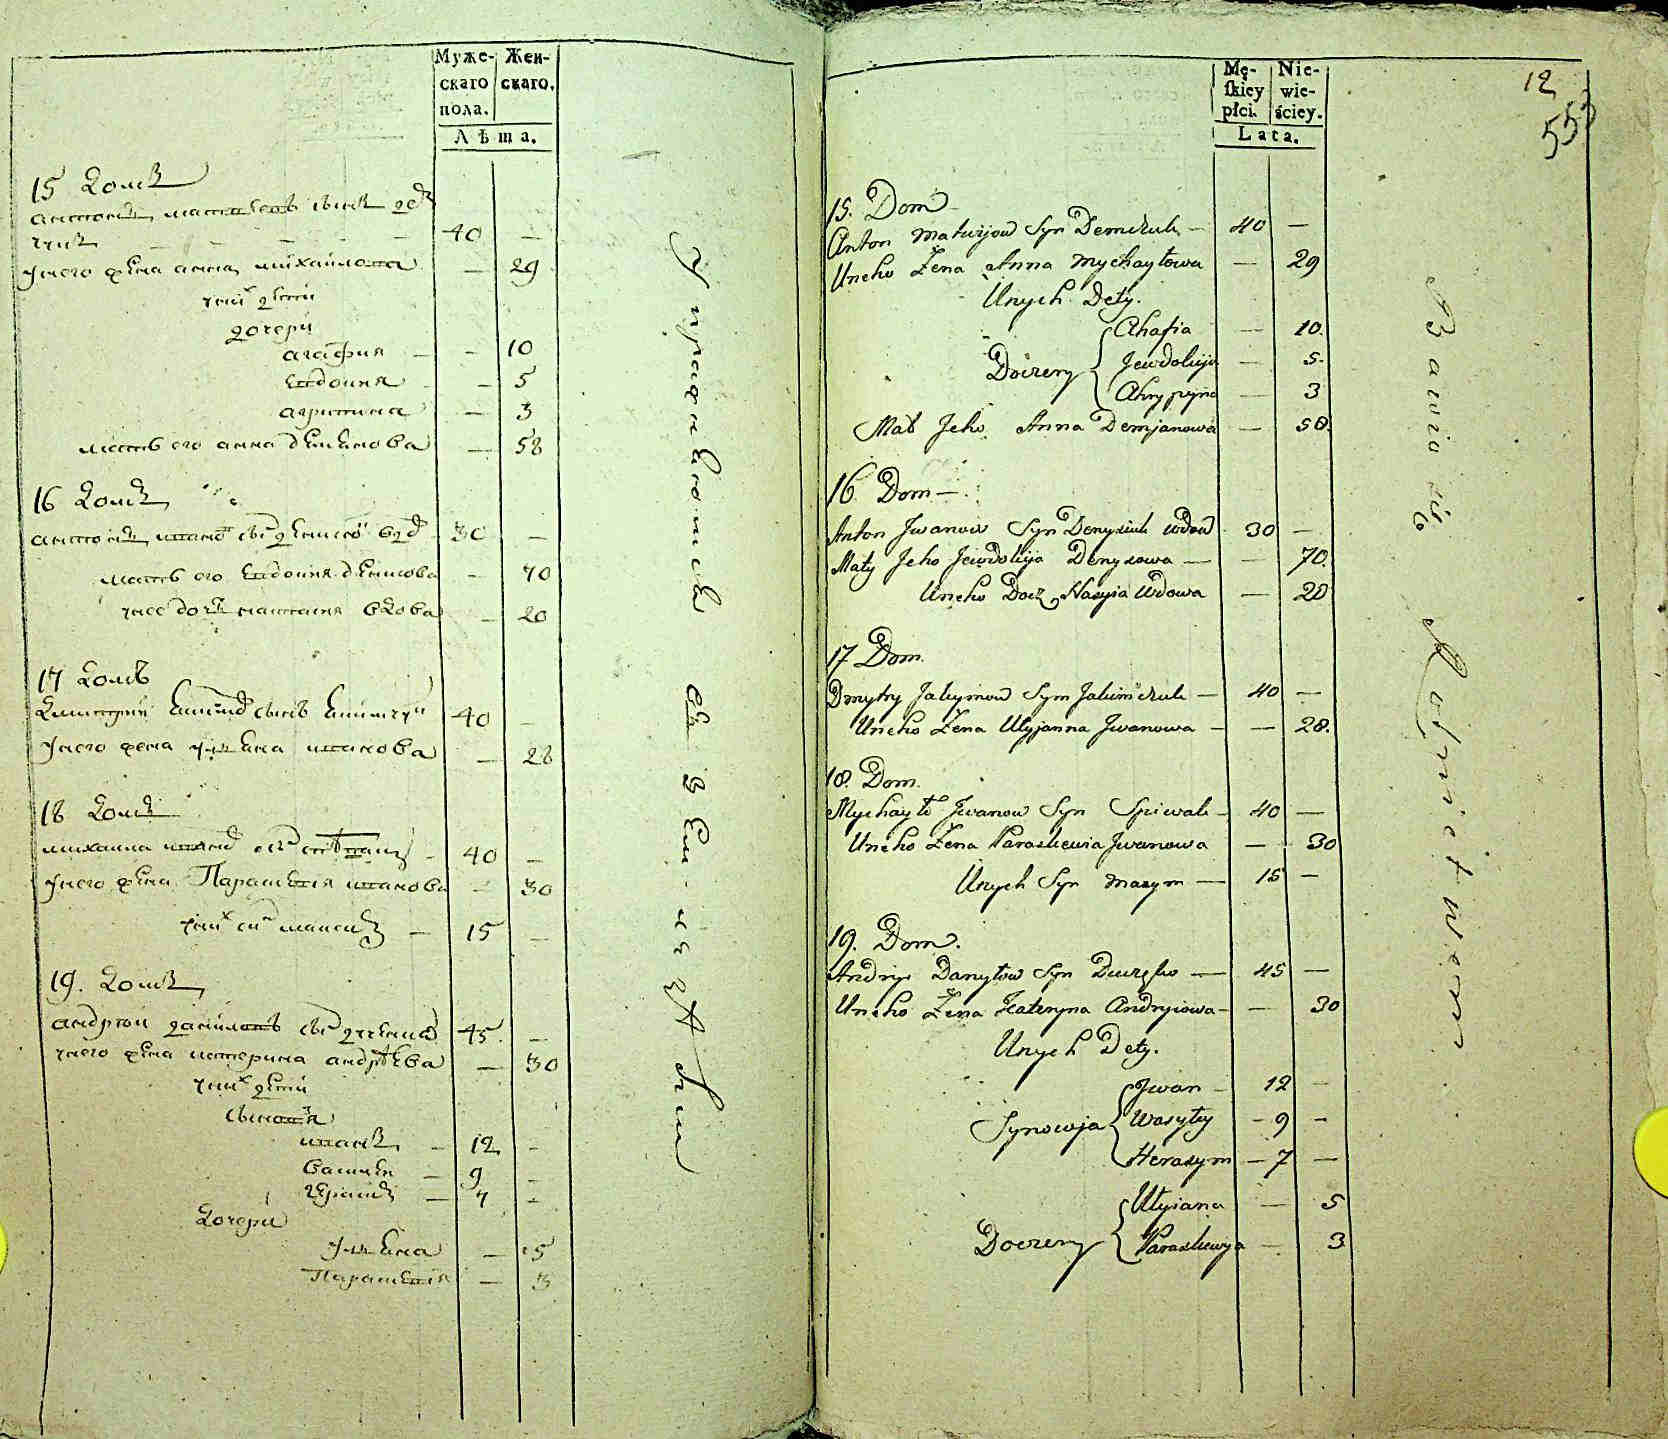 Муже- Жен-
скаго скаго.
пола.
Лѣта.
15 Домъ
антонъ сынъ
40 —
унего жена анна михайлова — 29
унихъ дети
дочери
агафия — — 10
евдокия — 5
агрипина — 3
мать его анна демянова — 58
16 Домъ
антонъ 30 —
мать его евдокия денисова — 70
настасия вдова — 20
17 Домъ
сынъ 40 —
унего жена улияна иванова — 28
18 Домъ
михаила 40 —
унего жена Параскевия иванова — 30
максимъ — 15 —
19. Домъ
андреи даниловъ 45 —
унего жена катерина андреева — 30
унихъ дети
сыновя
иванъ — 12 —
василеи — 9 —
герасимъ — 7 —
Дочери
улияна — 5
Параскевия — 3
Mę- Nie-
skiey wie-
płci. ściey.
Lata.
12
553
15. Dom
Anton Matwijow Syn Demczuk — 40 —
Uneho Żena Anna Mychayłowa — 29
Unych Dety.
Ahafia — 10.
Doczery Jewdokija — 5.
Ahrypyna — 3
Mat Jeho Anna Demjanowa — 58.
16 Dom —
Anton Jwanow Syn Denysiuk wdow 30 —
Maty Jeho Jewdokija Denysowa — — 70.
Uneho Docz Nasyia Wdowa — 20
17 Dom.
Dmytry Jakymow Syn Jakimczuk — 40 —
Uneho Żena Ulyjanna Jwanowa — — 28.
18. Dom.
Mychayło Jwanow Syn Spiwak — 40 —
Uneho Żena Paraskewia Jwanowa — 30
Unych Syn Maxym — 15 —
19. Dom.
Andryi Danyłow Syn — 45 —
Uneho Żena Kateryna Andryiowa — — 30
Unych Dety.
Jwan — 12 —
Synowja Wasyly — 9 —
Herasym — 7 —
Ulyiana — 5
Doczery Paraskewya — 3
Bawia się Rolnictwem